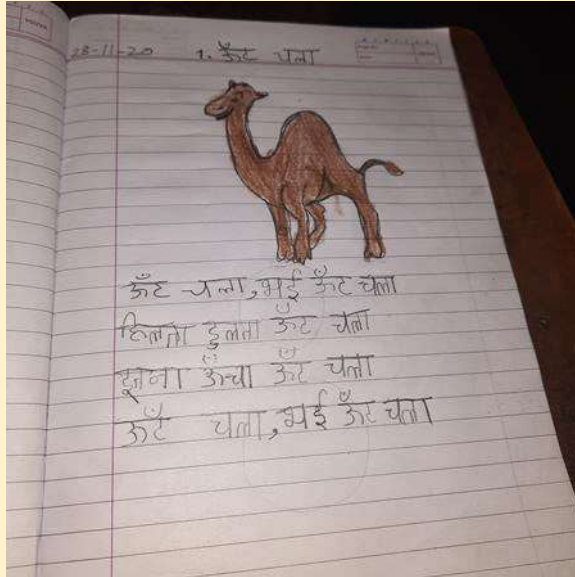 23-11-20 1. ऊँट चला
ऊँट चला, भई ऊँट चला
हिलता डुलता ऊँट चला
इतना ऊँचा ऊँट चला
ऊँट चला, भई ऊँट चला